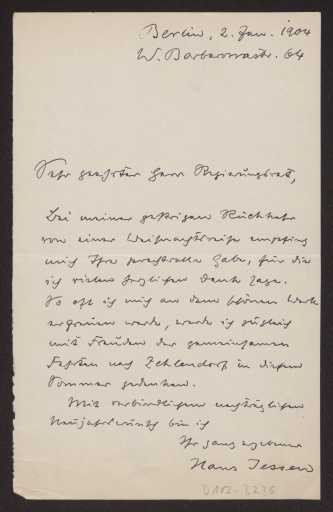 Berlin, 2. Jan. 1904
W. Barbarossastr. 64
Sehr geehrter Herr Regierungsrat,
Bei meiner gestrigen Rückkehr
von einer Weihnachtsreise empfing
mich Ihre prachtvolle Gabe, für die
ich vielen herzlichen Dank sage.
So oft ich mich an dem schönen Werk
erfreuen werde, werde ich zugleich
mit Freuden der gemeinsamen
Fahrten nach Zehlendorf in diesem
Sommer gedenken.
Mit verbindlichem nachträglichen
Neujahrswunsch bin ich
Ihr ganz ergebener
Hans Jessen